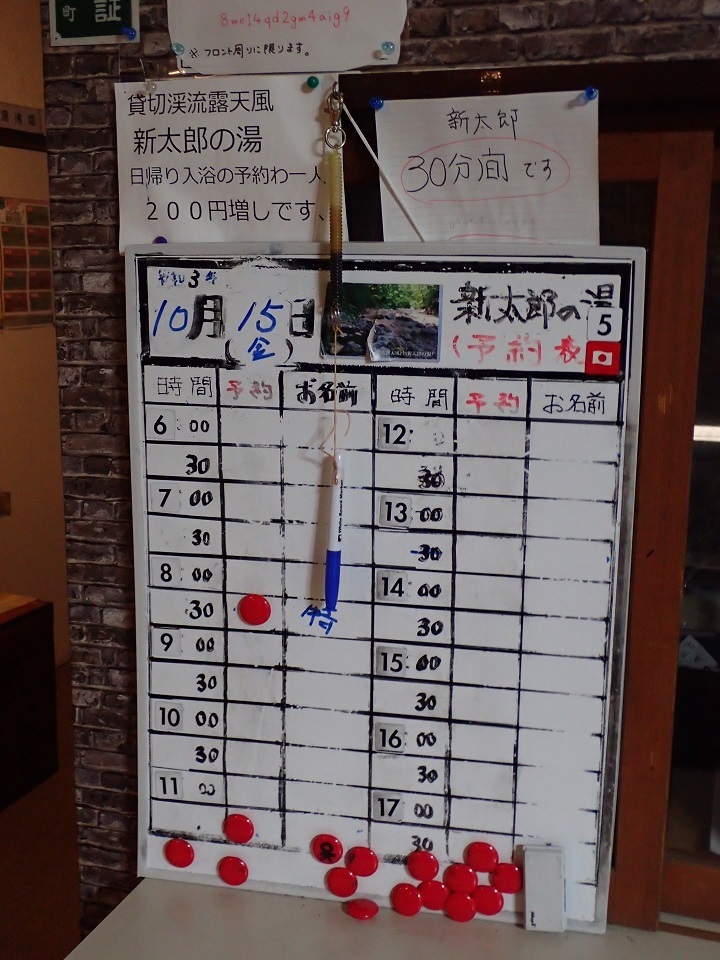 町 証
8me14qd2gm4aig9
※ フロント周りに限ります。
貸切渓流露天風
新太郎の湯
日帰り入浴の予約わ一人、
２００円増しです、
新太郎
30分間です
令和3年
10月15日
(金)
新太郎の湯
5
(予約表
時間 予約 お名前 時間 予約 お名前
6:00
30
7:00
30
8:00
30
9:00
30
10:00
30
11:00
12:
30
13:00
30
14:00
30
15:00
30
16:00
30
17:00
30